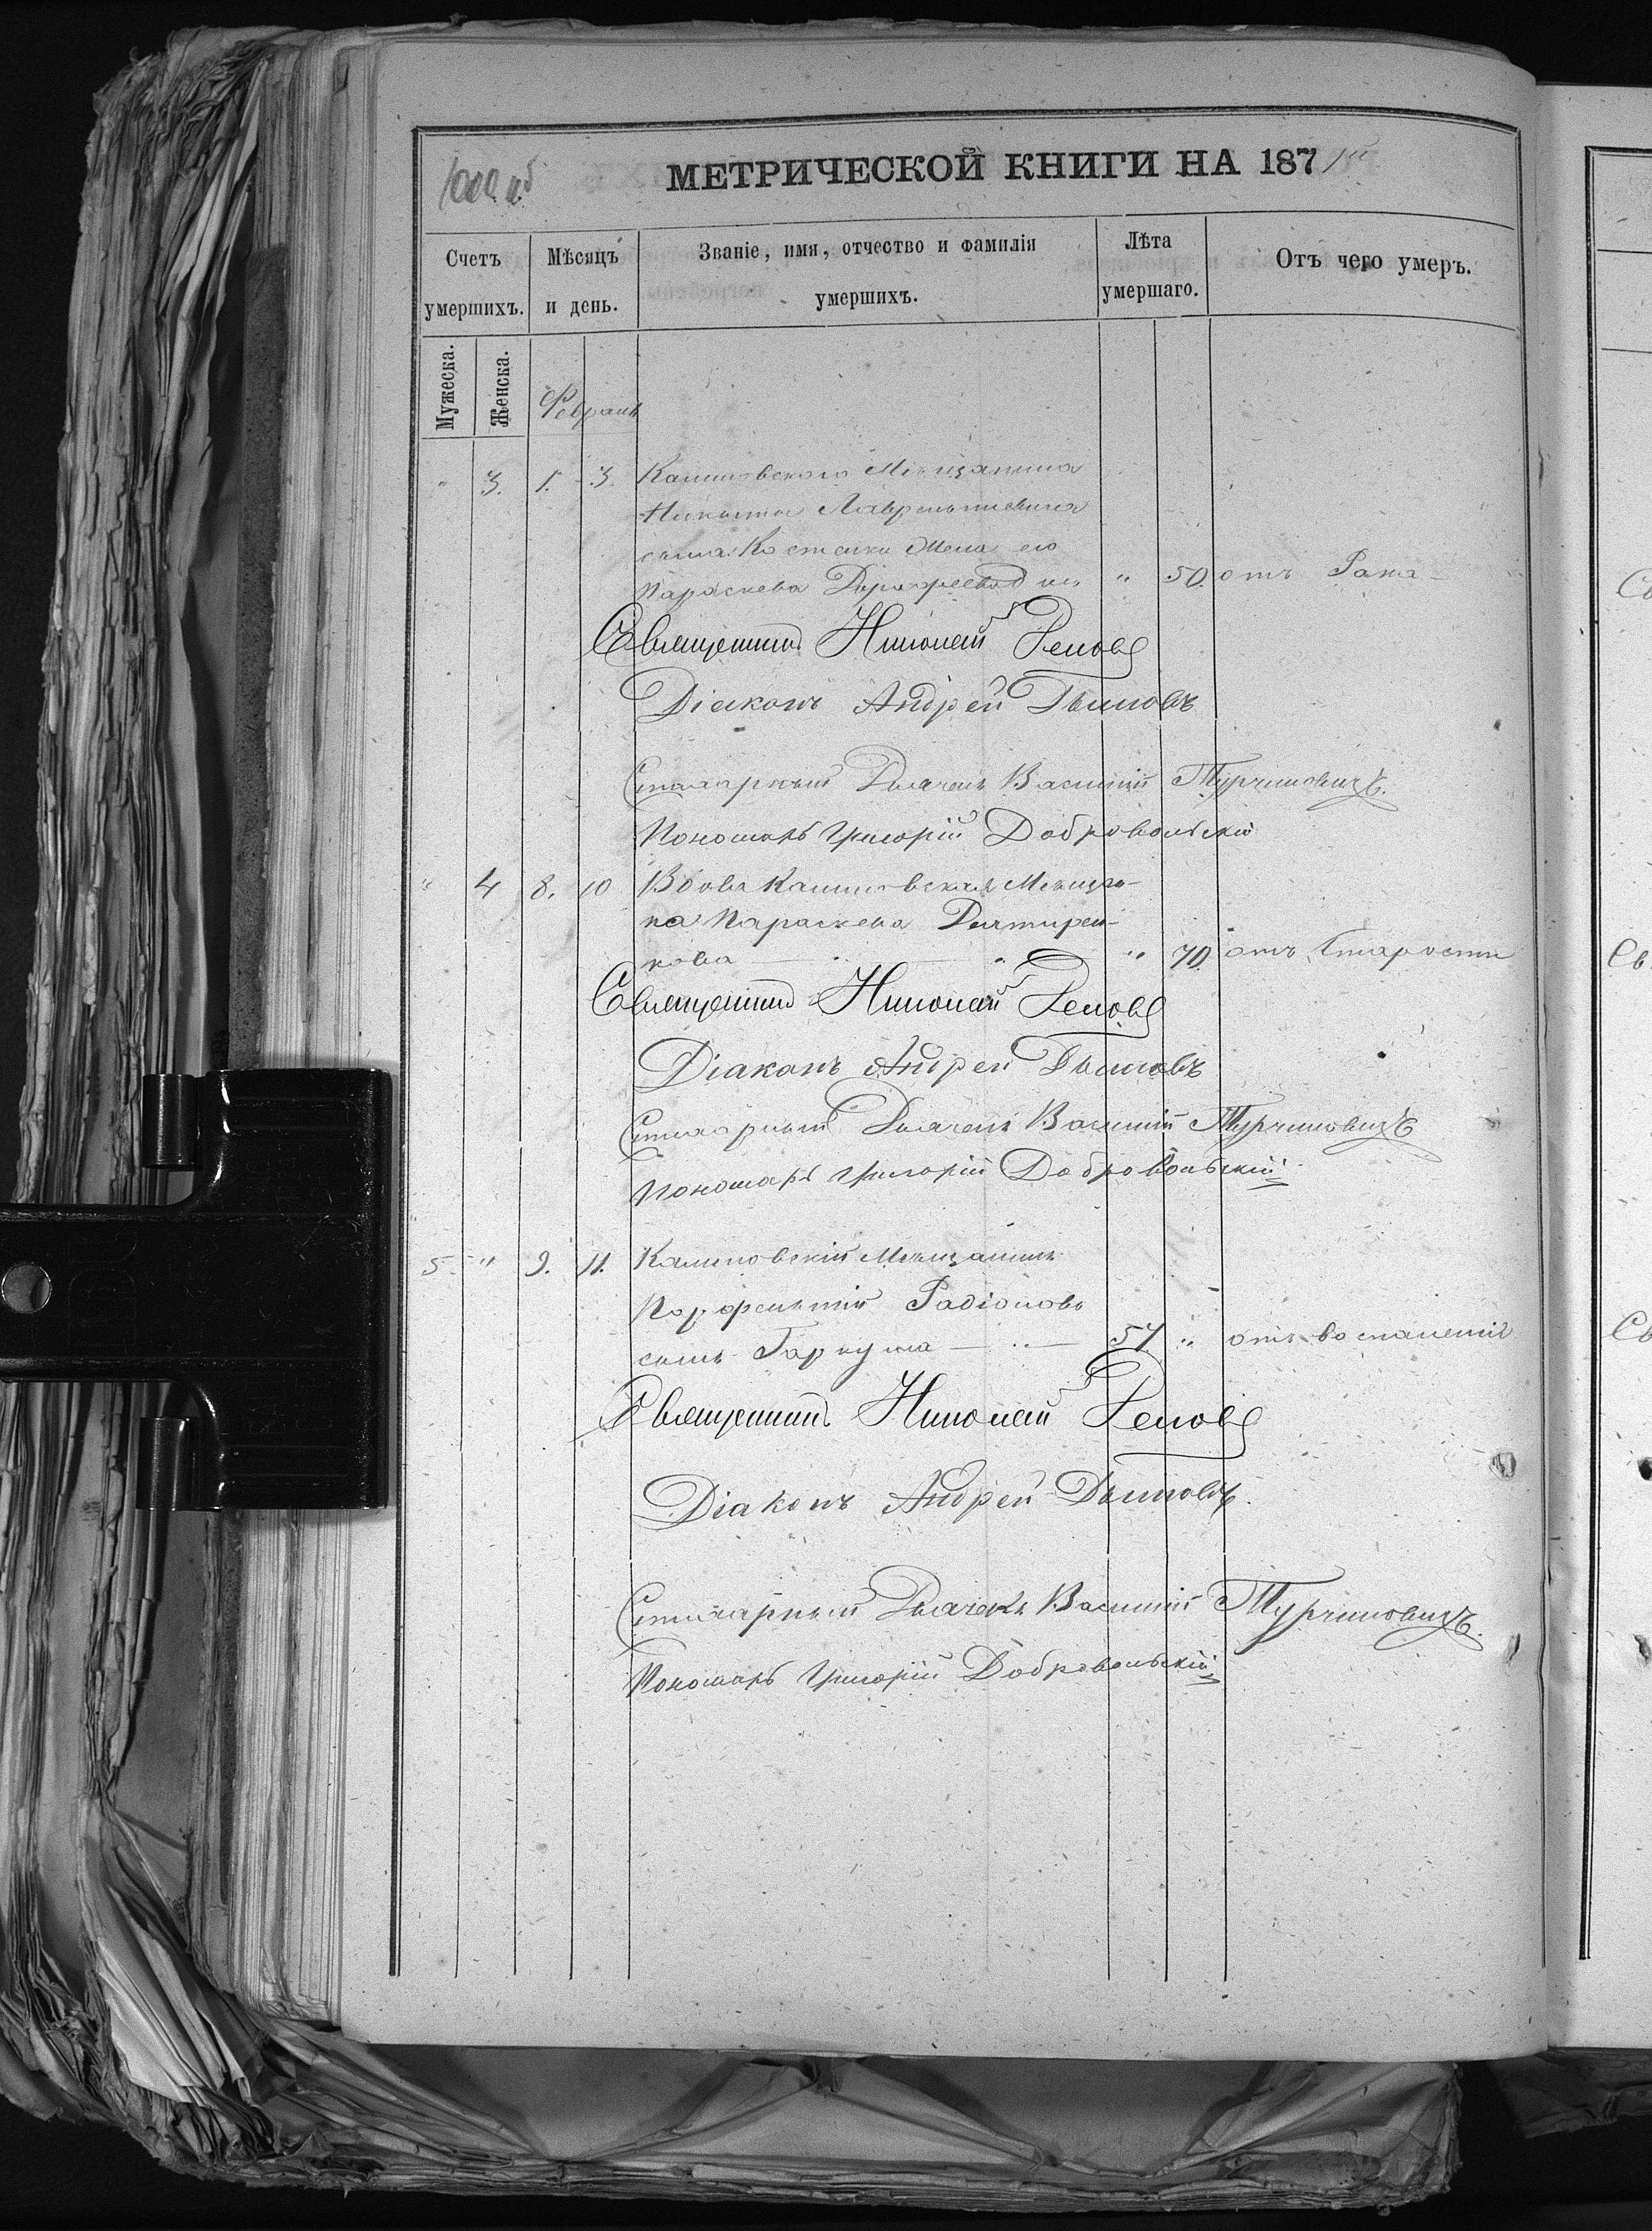 МЕТРИЧЕСКОЙ КНИГИ НА 187
Счетъ умершихъ.
Мѣсяцъ и день.
Званіе, имя, отчество и фамилія умершихъ.
Лѣта умершаго.
Отъ чего умеръ.
Мужеска.
Женска.
Февраль
" 3. 1. 3. Мѣщанина
Никиты Лаврентіевича
сына жена его
Параскева " 50. отъ Рака
Священникъ Николай
Діаконъ Андрей
Стихарный Дьячекъ Василій Турчиновичъ.
Пономарь Григорій Добровольскій
" 4 8. 10 Вдова Мѣщан-
ка Параскева
кова " 70. отъ Старости
Священникъ Николай
Діаконъ Андрей
Стихарный Дьячекъ Василій Турчиновичъ
Пономарь Григорій Добровольскій
5. " 9. 11. Мѣщанинъ
Парфентій Радіоновъ
сынъ Гаркуша 57 " отъ воспаленія
Священникъ Николай
Діаконъ Андрей
Стихарный Дьячекъ Василій Турчиновичъ.
Пономарь Григорій Добровольскій